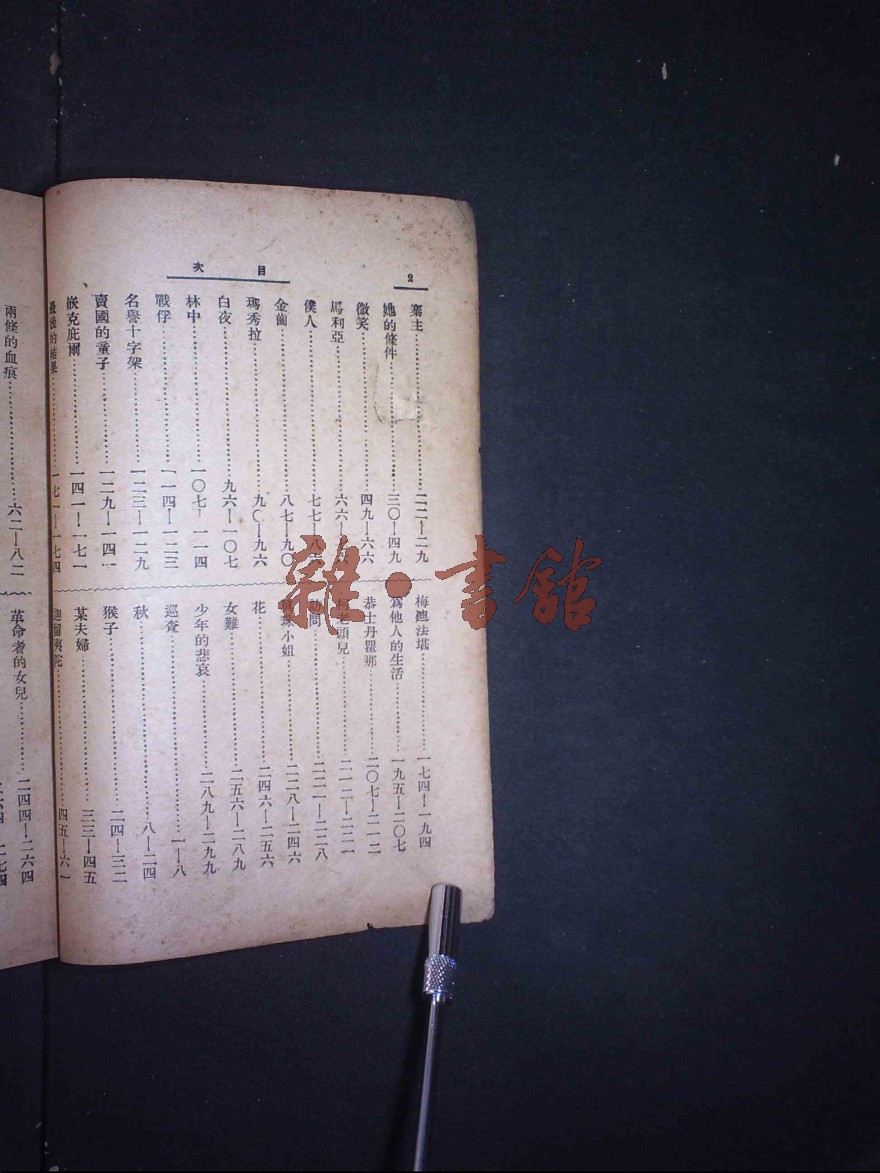 2
目次
寨主 二二—二九
她的條件 三〇—四九
微笑 四九—六六
馬利亞 六六—
僕人 七七—八六
金齒 八七—九〇
瑪秀拉 九〇—九六
白夜 九六—一〇七
林中 一〇七—一一四
戰俘 一一四—一二三
名譽十字架 一二三—一二九
賣國的童子 一二九—一四一
嵌克庇爾 一四一—一七一
最後的結果 一七一—一七四
梅逎法堪 一七四—一九四
爲他人的生活 一九五—二〇七
恭士丹瞿那 二〇七—二一二
老頭兒 二一二—二二一
訪問 二二一—二二八
小姐 二二八—二四六
花 二四六—二五六
女難 二五六—二八九
少年的悲哀 二八九—二九九
巡査 一—八
秋 八—二四
猴子 二四—三二
某夫婦 三三—四五
迦留陀夷 四五—六一
兩條的血痕 六二—八二
革命者的女兒 二四四—二六四
雜·書館